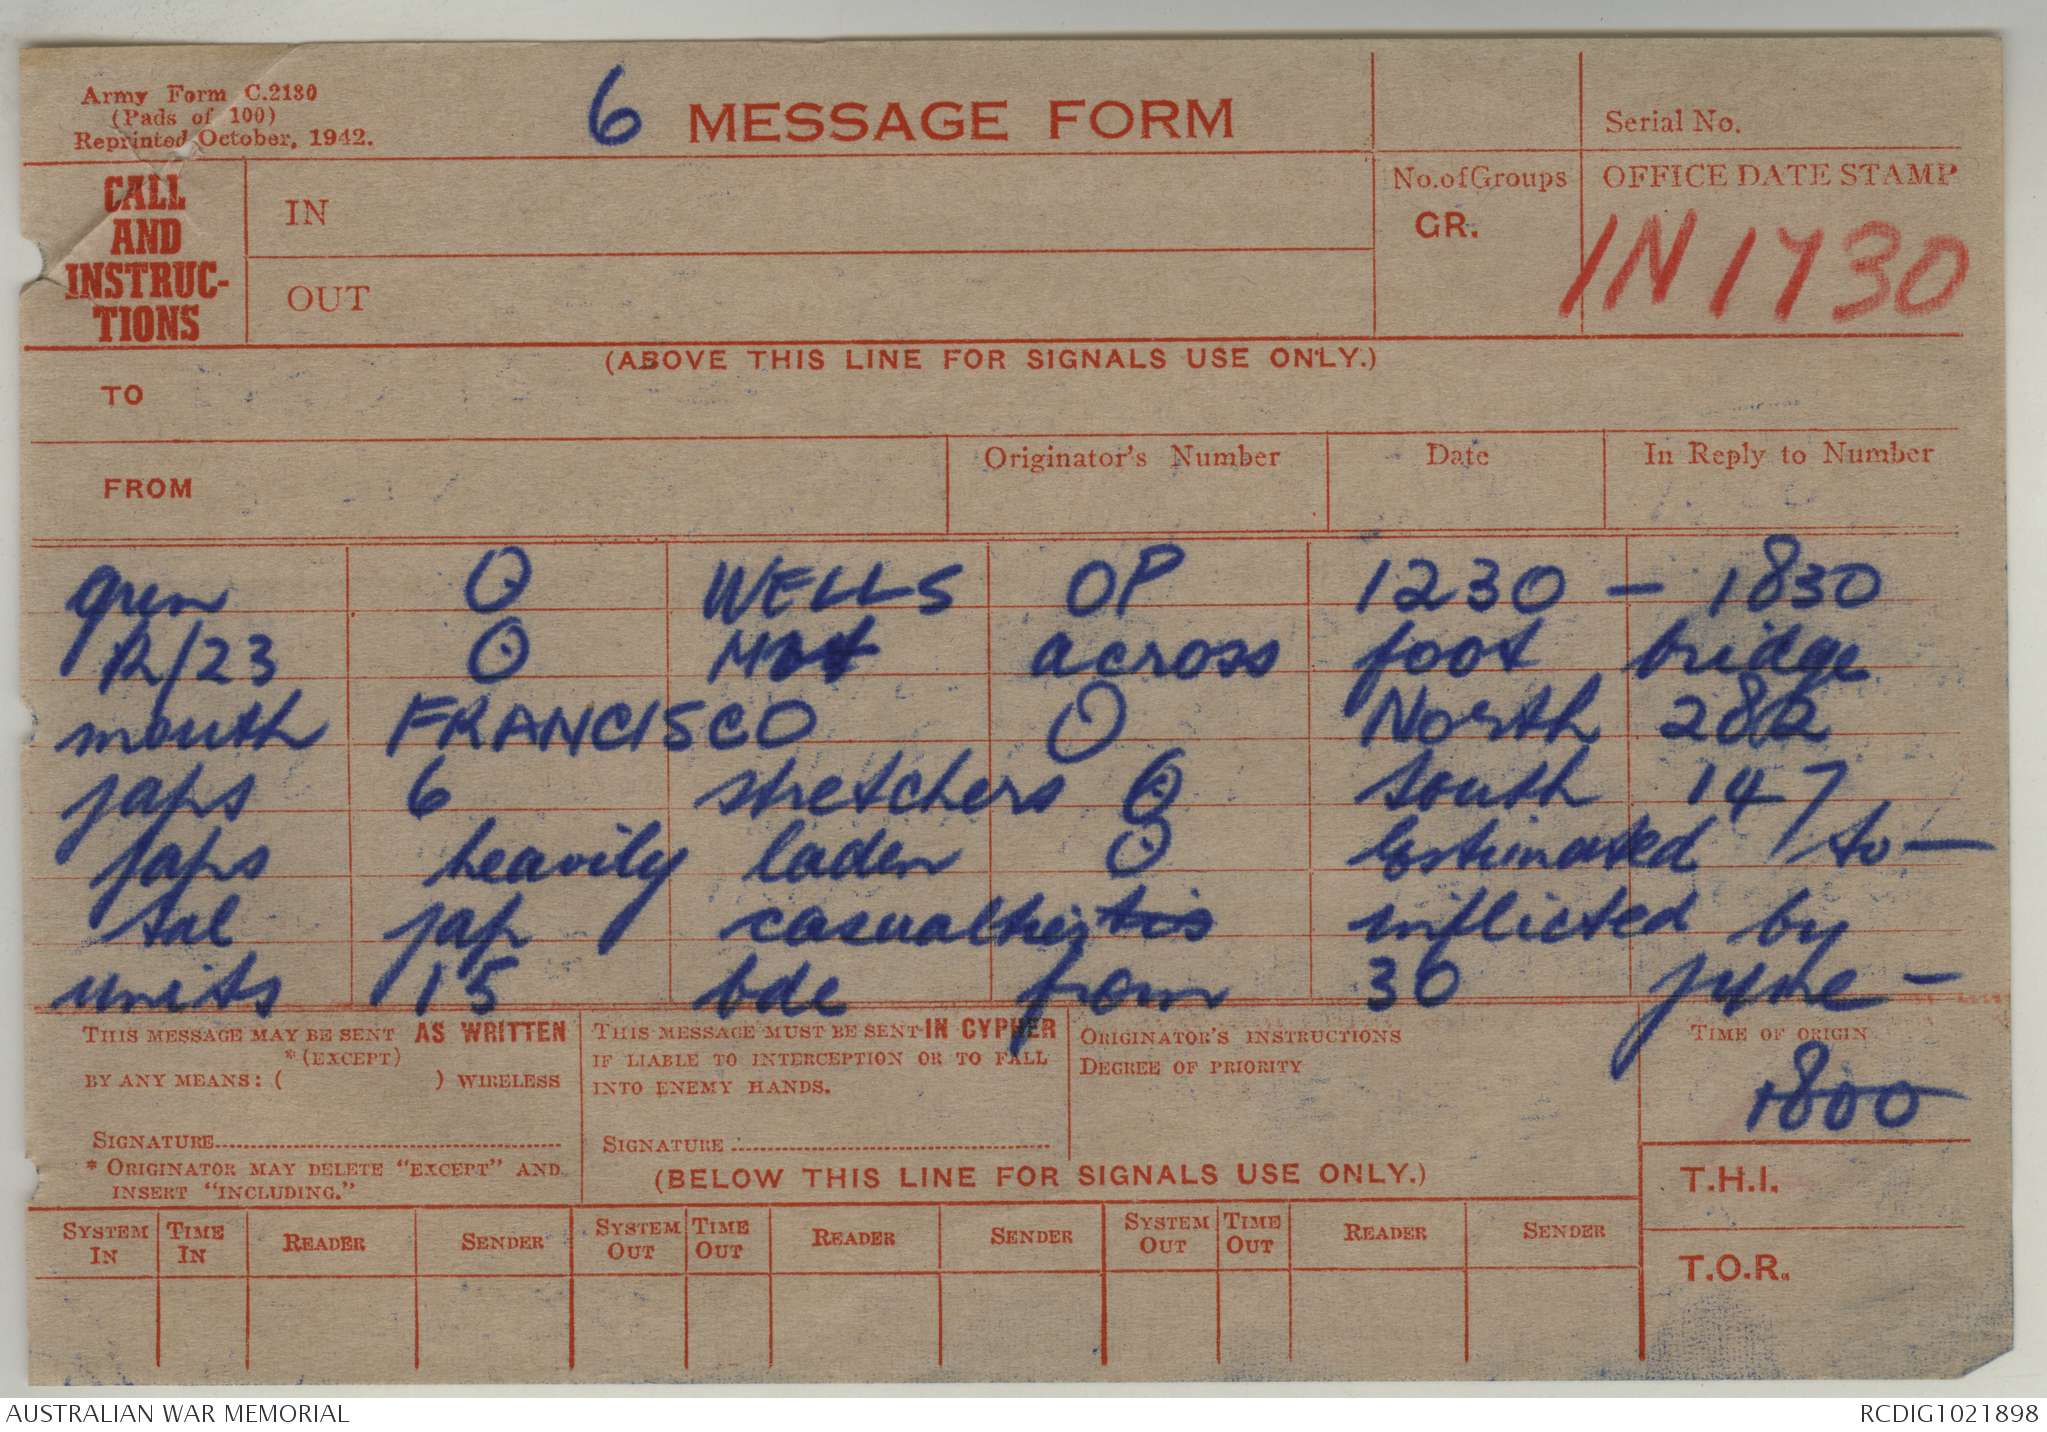 Army Form C.2130
(Pads of 100)
Reprinted October, 1942.
6 MESSAGE FORM
Serial No.
CALL
AND
INSTRUC-
TIONS
IN
OUT
No. of Groups
GR.
OFFICE DATE STAMP
IN 1730
(ABOVE THIS LINE FOR SIGNALS USE ONLY.)
TO
FROM
Originator's Number
Date
In Reply to Number
gren O WELLS OP 1230 - 1830
R/23 O across foot bridge
mouth FRANCISCO O North 282
japs 6 stretchers O south 147
japs heavily laden O estimated to-
tal jap casualties inflicted by
units 15 bde from 30 june -
THIS MESSAGE MAY BE SENT AS WRITTEN
* (EXCEPT)
BY ANY MEANS: ( ) WIRELESS
SIGNATURE
* ORIGINATOR MAY DELETE "EXCEPT" AND
INSERT "INCLUDING."
THIS MESSAGE MUST BE SENT IN CYPHER
IF LIABLE TO INTERCEPTION OR TO FALL
INTO ENEMY HANDS.
SIGNATURE
ORIGINATOR'S INSTRUCTIONS
DEGREE OF PRIORITY
TIME OF ORIGIN
1800
(BELOW THIS LINE FOR SIGNALS USE ONLY.)
T.H.I.
T.O.R.
SYSTEM IN TIME IN READER SENDER SYSTEM OUT TIME OUT READER SENDER SYSTEM OUT TIME OUT READER SENDER
AUSTRALIAN WAR MEMORIAL
RCDIG1021898